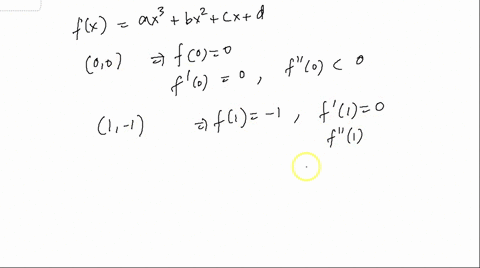 f(x) = ax³ + bx² + cx + d
(0,0) ⇒ f(0) = 0
f'(0) = 0 , f''(0) < 0
(1,-1) ⇒ f(1) = -1 , f'(1) = 0
f''(1)